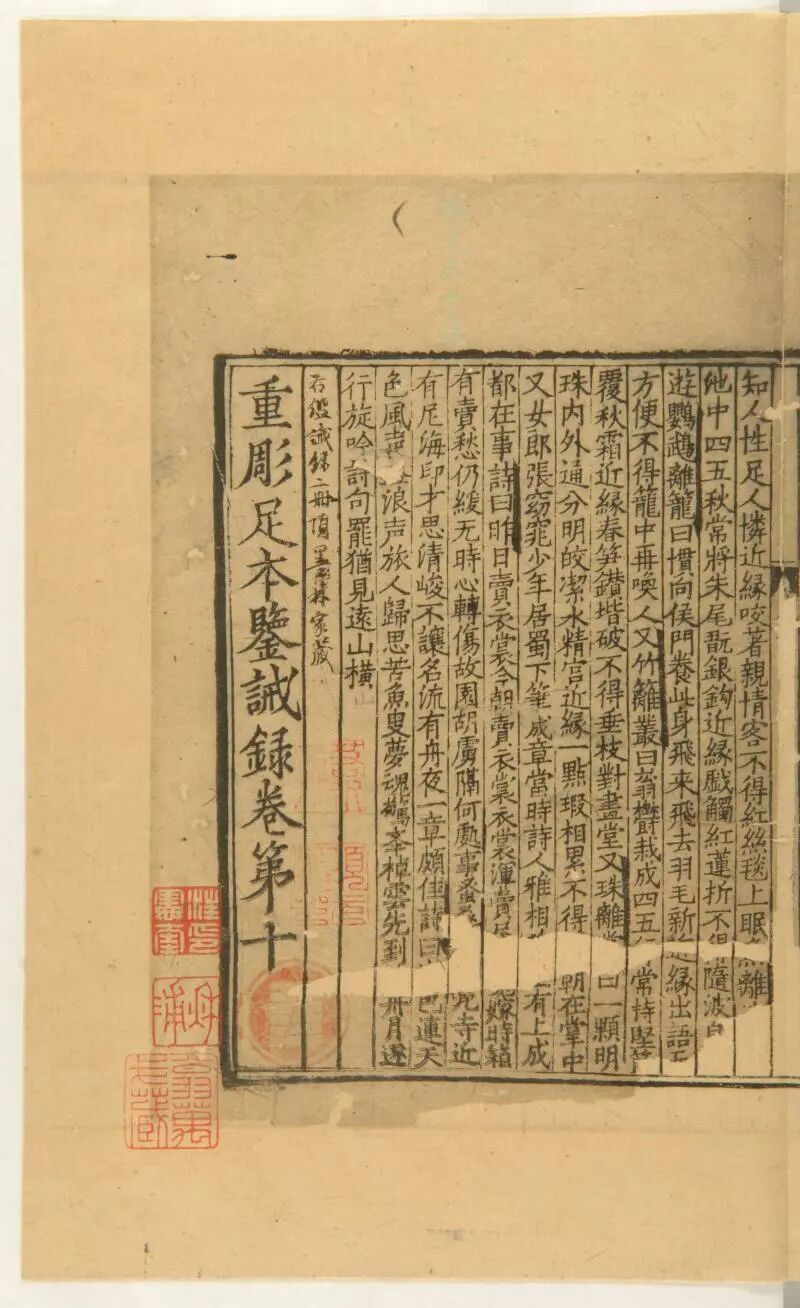 知人性足人憐近緣咬著親情客不得紅絲毯上眠 離
池中四五秋常將朱尾翫銀鉤近緣戲觸紅蓮折不 隨波
遊鸚鵡離籠曰慣向侯門養此身飛來飛去羽毛新 緣出語
方便不得籠中再喚人又竹籬叢曰蓊欝栽成四五 常持堅
覆秋霜近緣春笋鑚堦破不得垂枝對畫堂又珠離 曰一顆明
珠內外通分明皎潔水精宮近緣一點瑕相累不得 在掌中
又女郎張窈窕少年居蜀下筆成章當時詩人雅相 有上成
都在事詩曰昨日賣衣裳今朝賣衣裳衣裳渾賣 嫁時箱
有賣愁仍緩无時心轉傷故園胡虜隔何處事蚕 尼寺近
有尼海印才思清峻不讓名流有舟夜一章頗佳詩曰 巴連天
色風声 浪声旅人歸思苦魚叟夢魂驚峯棹雲先到 舟月遂
行旋吟詩句罷猶見遠山橫
右鑑誡錄二冊項墨林家藏
重彫足本鑒誡録卷第十